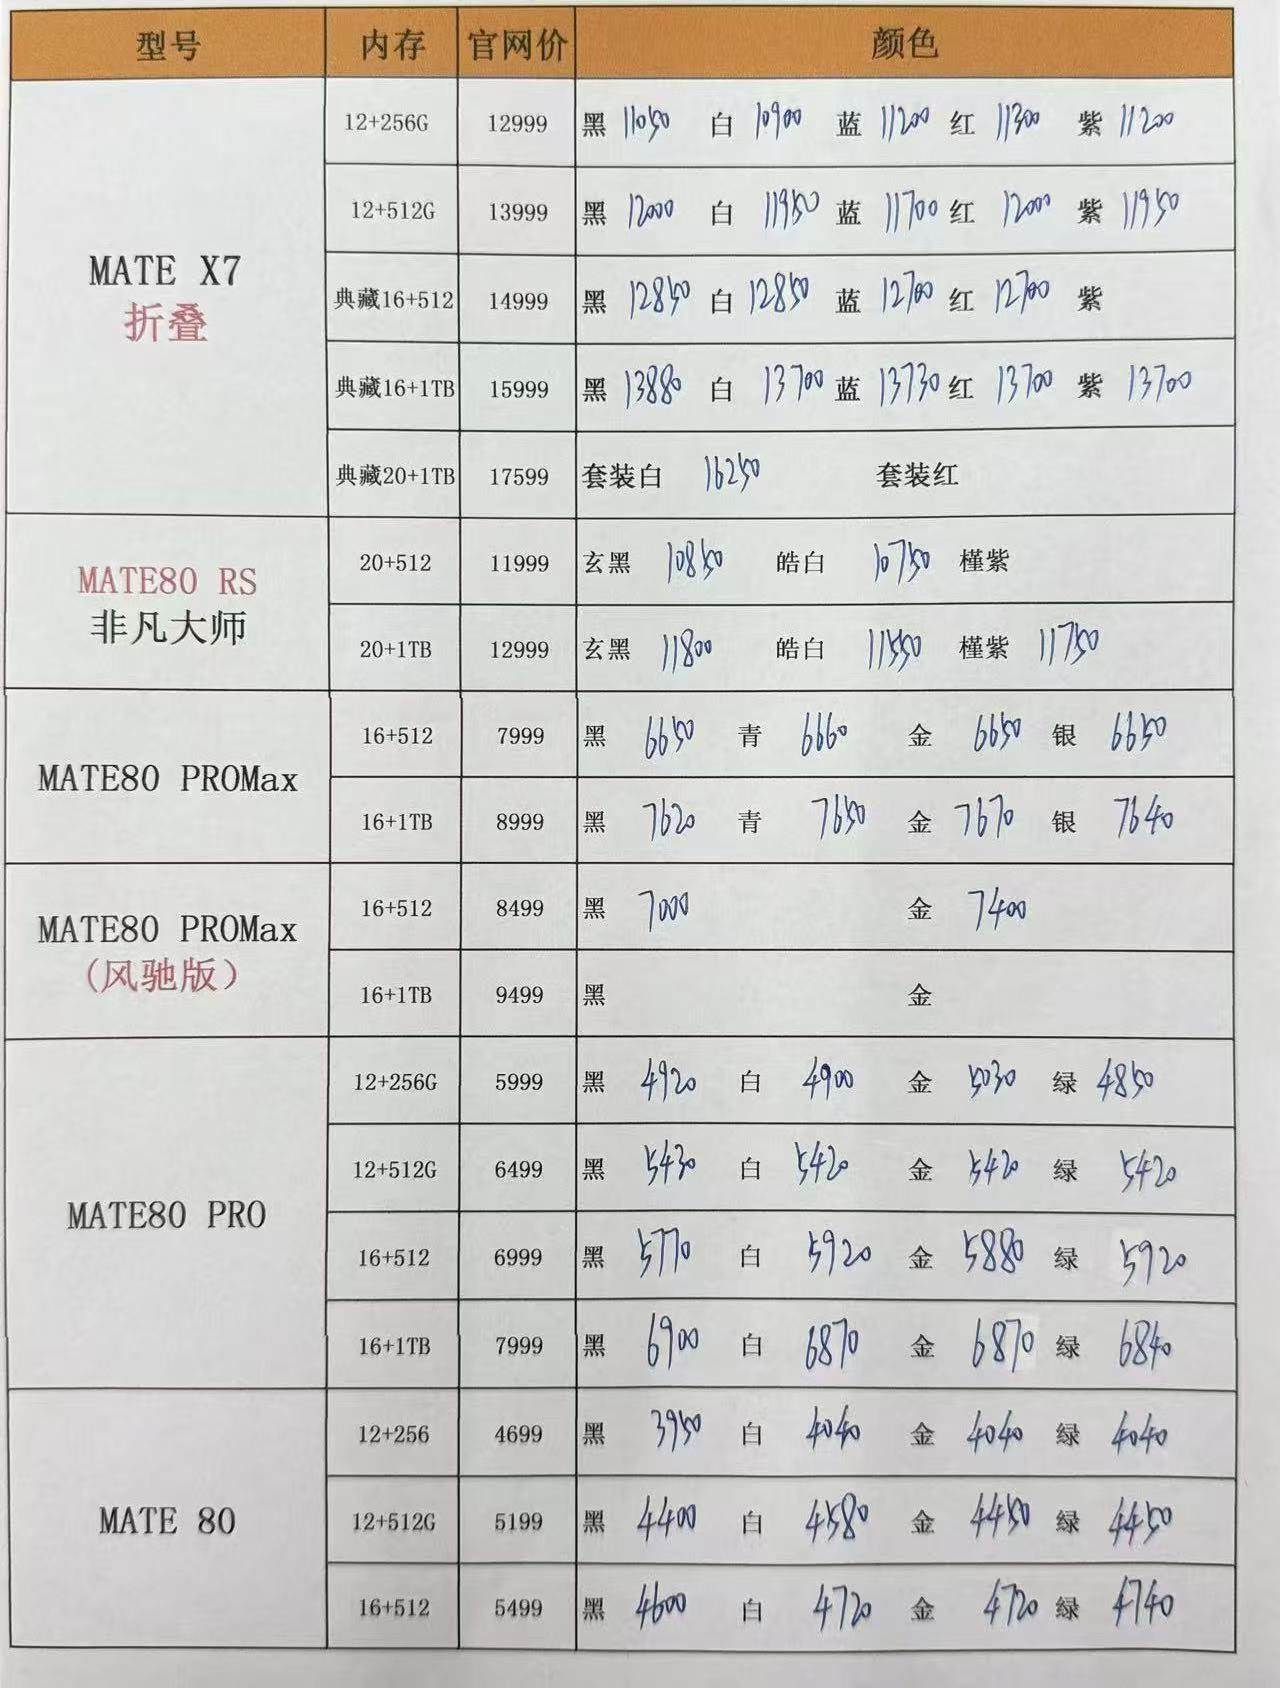 型号 内存 官网价 颜色
MATE X7
折叠
12+256G 12999 黑 11050 白 10900 蓝 11200 红 11300 紫 11200
12+512G 13999 黑 12000 白 11950 蓝 11700 红 12000 紫 11950
典藏16+512 14999 黑 12850 白 12850 蓝 12700 红 12700 紫
典藏16+1TB 15999 黑 13880 白 13700 蓝 13730 红 13700 紫 13700
典藏20+1TB 17599 套装白 16250 套装红
MATE80 RS
非凡大师
20+512 11999 玄黑 10850 皓白 10750 槿紫
20+1TB 12999 玄黑 11800 皓白 11550 槿紫 11750
MATE80 PROMax
16+512 7999 黑 6650 青 6660 金 6650 银 6650
16+1TB 8999 黑 7620 青 7650 金 7670 银 7640
MATE80 PROMax
(风驰版)
16+512 8499 黑 7000 金 7400
16+1TB 9499 黑 金
MATE80 PRO
12+256G 5999 黑 4920 白 4900 金 5030 绿 4850
12+512G 6499 黑 5430 白 5420 金 5420 绿 5420
16+512 6999 黑 5770 白 5920 金 5880 绿 5920
16+1TB 7999 黑 6900 白 6870 金 6870 绿 6840
MATE 80
12+256 4699 黑 3950 白 4040 金 4040 绿 4040
12+512G 5199 黑 4400 白 4580 金 4450 绿 4450
16+512 5499 黑 4600 白 4720 金 4720 绿 4740